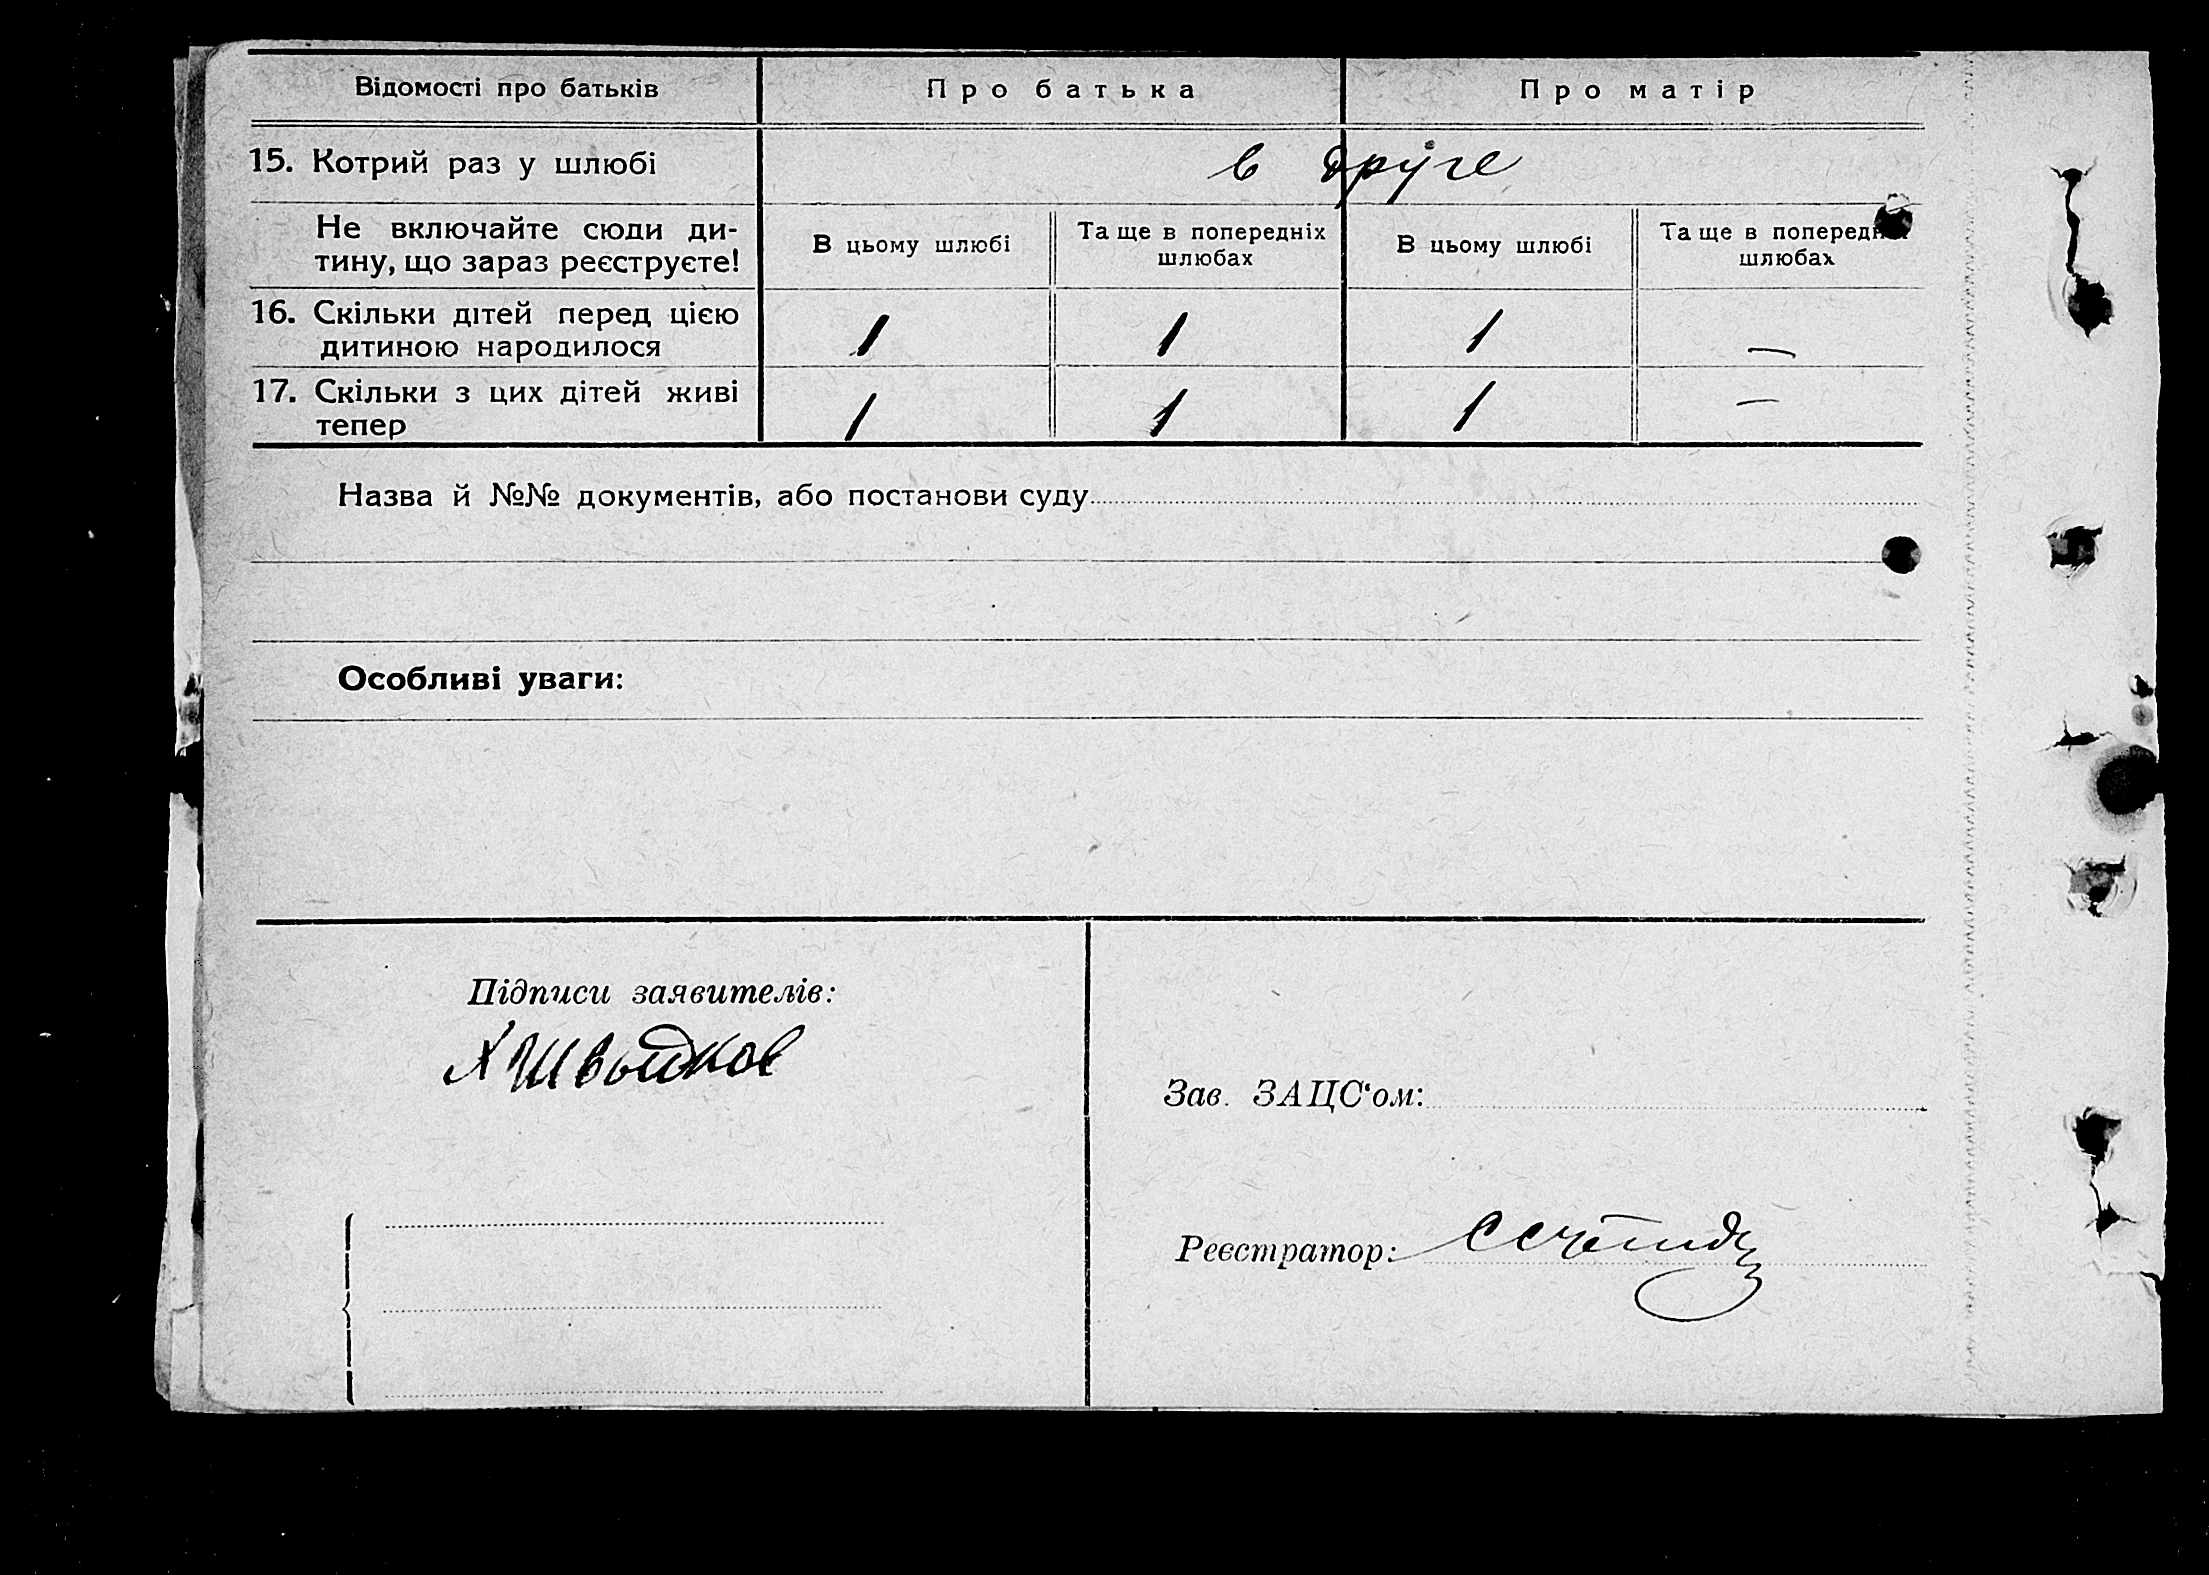 Відомості про батьків Про батька Про матір
15. Котрий раз у шлюбі в друге
Не включайте сюди ди-
тину, що зараз реєструєте!
В цьому шлюбі Та ще в попередніх
шлюбах
В цьому шлюбі Та ще в
шлюбах
16. Скільки дітей перед цією
дитиною народилося 1 1 1 —
17. Скільки з цих дітей живі
тепер 1 1 1 —
Назва й №№ документів, або постанови суду
Особливі уваги:
Підписи заявителів:
Зав. ЗАЦС‘ом:
Реєстратор: